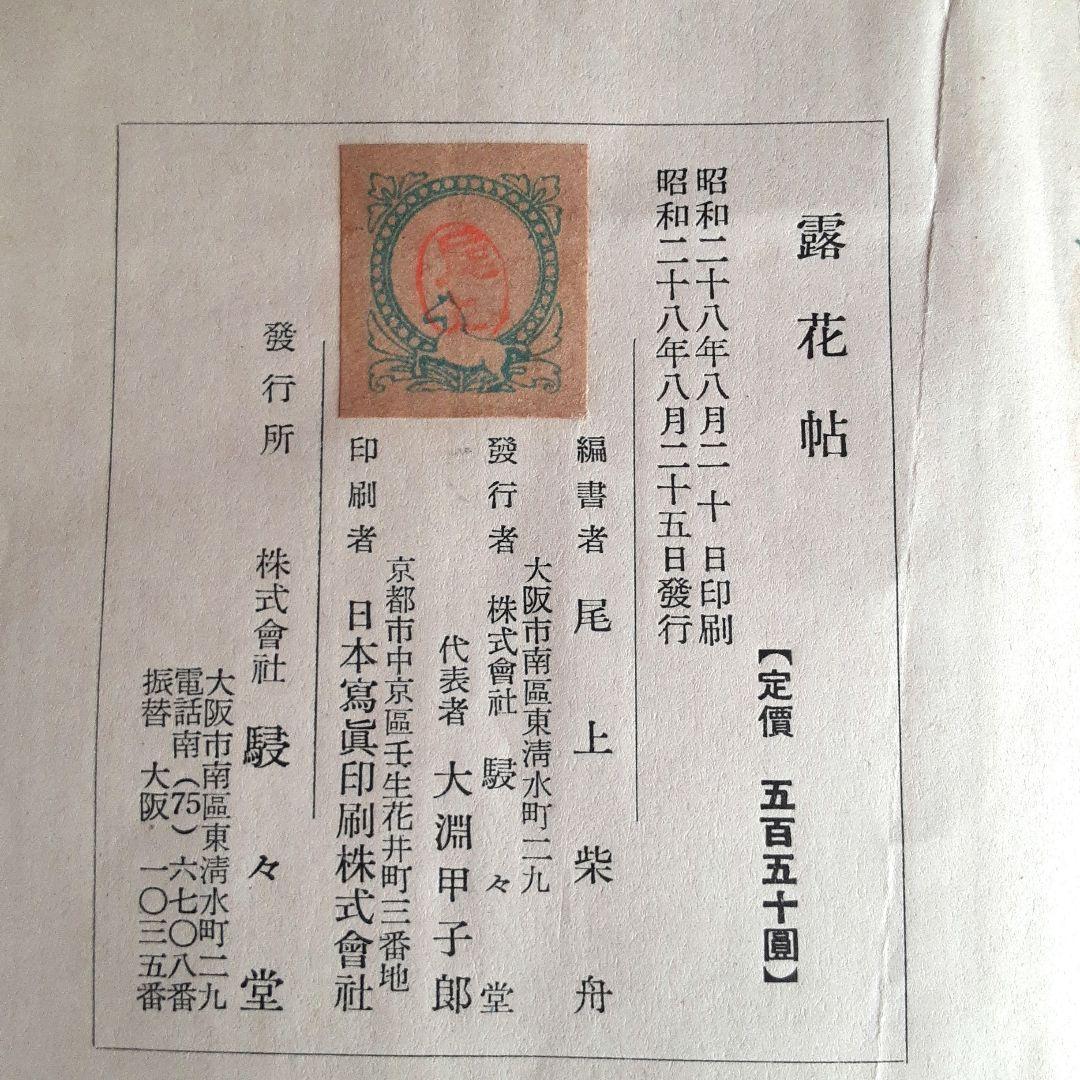 露花帖
【定價 五百五十圓】
昭和二十八年八月二十日印刷
昭和二十八年八月二十五日發行
編書者 尾上柴舟
大阪市南區東淸水町二九
發行者 株式會社 駸々堂
代表者 大淵甲子郎
京都市中京區壬生花井町三番地
印刷者 日本寫眞印刷株式會社
發行所 株式會社 駸々堂
大阪市南區東淸水町二九
電話南(75)六七〇八番
振替 大阪 一〇三五番